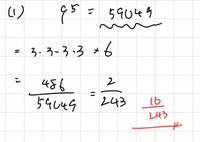 (1) 9^5 = 59049
= 3・3・3・3 × 6
= 486/59049 = 2/243
10/243